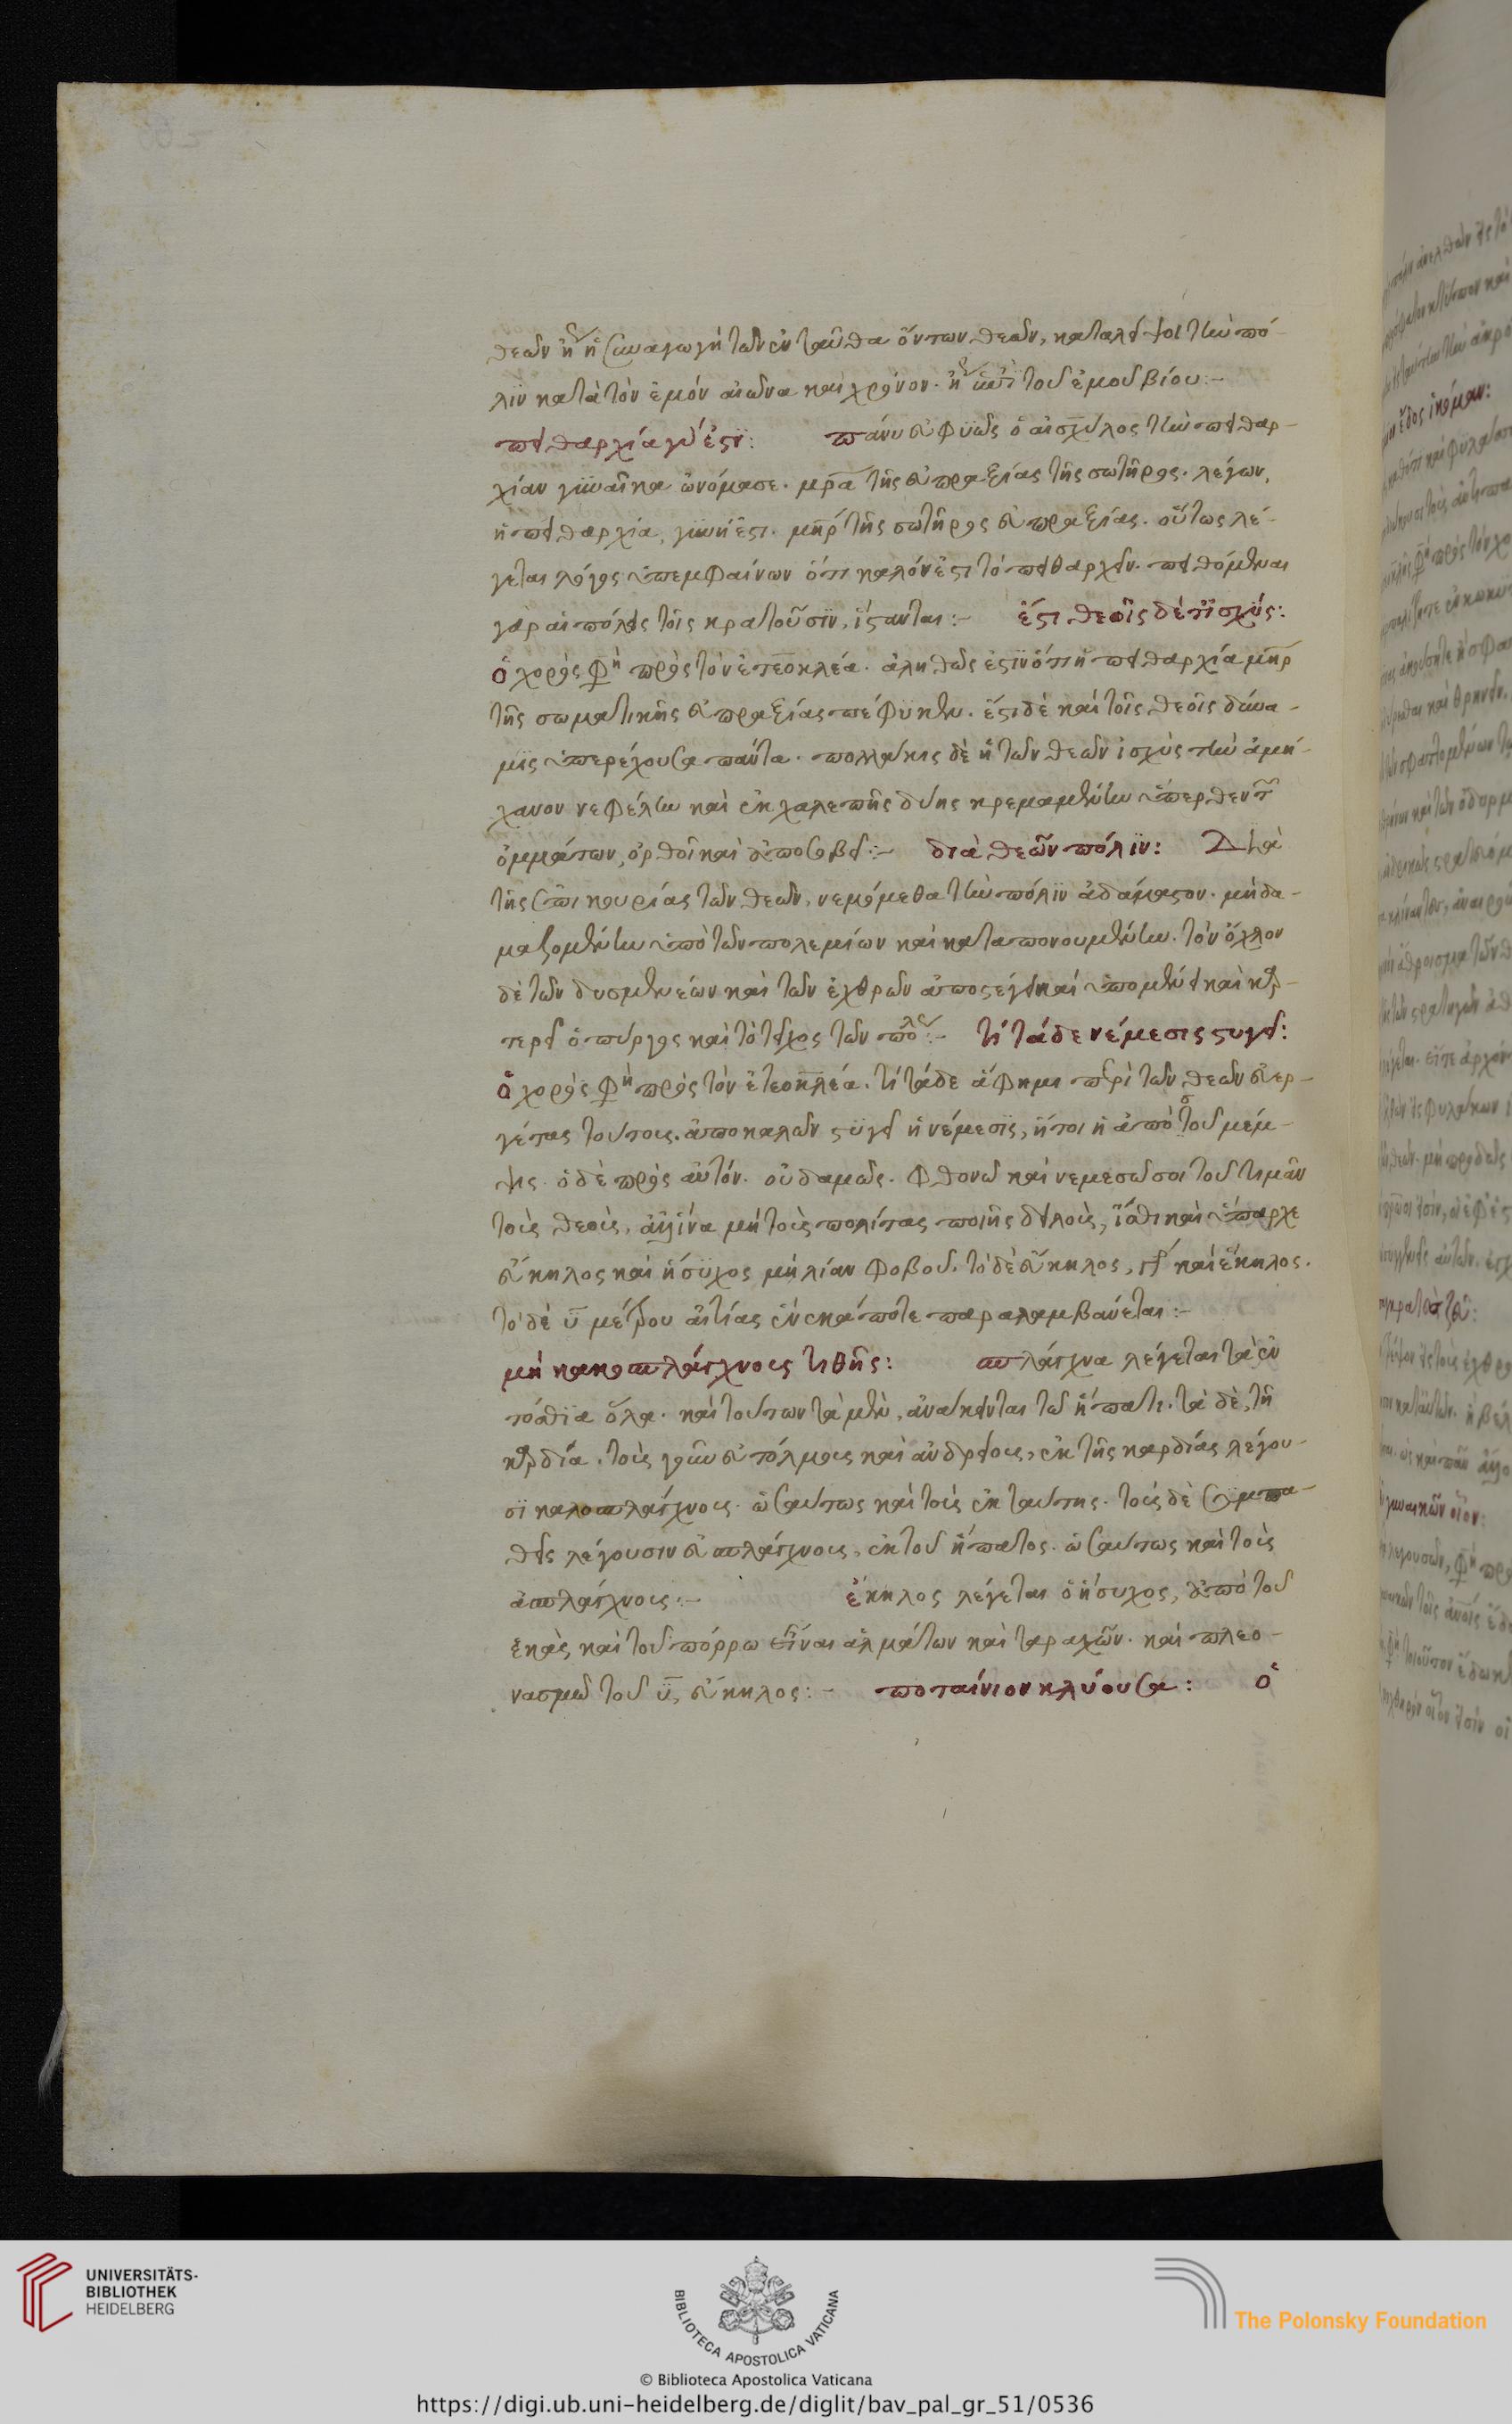 θεῶν ἤγουν ἡ συναγωγὴ τῶν ἐνταῦθα ὄντων θεῶν, καταλείψοι τὴν πό-
λϊν κατὰ τὸν ἐμὸν αἰῶνα καὶ χρόνον. ἤγουν ἐπὶ τοῦ ἐμοῦ βίου:-
πειθαρχία γάρ ἐστϊ: πάνυ εὐφυῶς ὁ αἰσχύλος τὴν πειθαρ-
χίαν γυναῖκα ὠνόμασε. μρ̅α τῆς εὐπραξίας τῆς σωτῆρος. λέγων,
ἡ πειθαρχία, γυνή ἐστι. μη̅ρ τῆς σωτῆρος εὐπραξίας. οὕτως λέ-
γεται λόγος ὑπεμφαίνων ὅτι καλόν ἐστι τὸ πειθαρχεῖν. πειθόμεναι
γὰρ αἱ πόλεις τοῖς κρατοῦσϊν, ἵστανται:- ἔστι θεοῖς δ' ἔτ' ἰσχύς:
ὁ χορός φη πρὸς τὸν ἐτεοκλέα. ἀληθῶς ἐστϊν ὅτι ἡ πειθαρχία μη̅ρ
τῆς σωματικῆς εὐπραξίας πέφυκεν. ἔστι δὲ καὶ τοῖς θεοῖς δύνα-
μϊς ὑπερέχουσα πάντα. πολλάκις δὲ ἡ τῶν θεῶν ἰσχὺς τὴν ἀμή-
χανον νεφέλην καὶ ἐκ χαλεπῆς δύης κρεμαμένην ὕπερθεν τῶν
ὀμμάτων, ὀρθοῖ καὶ ἀποσοβεῖ:- διὰ θεῶν πόλιν: Διὰ
τῆς ἐπικουρίας τῶν θεῶν, νεμόμεθα τὴν πόλϊν ἀδάμαστον. μὴ δα-
μαζομένην ὑπὸ τῶν πολεμίων καὶ καταπονουμένην. τὸν ὄχλον
δὲ τῶν δυσμενέων καὶ τῶν ἐχθρῶν ἀποστέγει καὶ ὑπομένει καὶ καρ-
τερεῖ ὁ πύργος καὶ τὸ τεῖχος τῶν πόλεων:- τί τάδε νέμεσις στυγεῖ:
ὁ χορός φη πρὸς τὸν ἐτεοκλέα. τί τάδε ἅ φημι περὶ τῶν θεῶν εὐερ-
γέτας τούτους ἀποκαλῶν στϋγεῖ ἡ νέμεσϊς, ἤτοι ἡ ἀπὸ τοῦ μέμ-
ψις. ὁ δὲ πρὸς αὐτόν. οὐδαμῶς. φθονῶ καὶ νεμεσῶ σοι τοῦ τιμᾶν
τοὺς θεούς, ἀλλ' ἵνα μὴ τοὺς πολίτας ποιῇς δειλούς, ἴσθι καὶ ὕπαρχε
εὔκηλος καὶ ἥσϋχος μὴ λίαν φοβοῦ. τὸ δὲ εὔκηλος, γράφεται καὶ ἕκηλος.
τὸ δὲ ϋ̅ μέτρου αἰτίας ἕνεκά ποτε παραλαμβάνεται:-
μὴ κακοσπλάγχνους τιθῇς: σπλάγχνα λέγεται τὰ ἐν
τόσθϊα ὅλα. καὶ τούτων τὰ μὲν, ἀνάκεινται τῷ ἥπατι. τὰ δὲ, τῇ
καρδίᾳ. τοὺς γοῦν εὐτόλμους καὶ ἀνδρείους, ἐκ τῆς καρδίας λέγου-
σϊ καλοσπλάγχνους. ὡσαύτως καὶ τοὺς ἐκ ταύτης. τοὺς δὲ συμπα-
θεῖς λέγουσιν εὐσπλάγχνους, ἐκ τοῦ ἥπατος. ὡσαύτως καὶ τοὺς
ἀσπλάγχνους:- ἕκηλος λέγεται ὁ ἥσυχος, ἀπὸ τοῦ
ἑκὰς καὶ τοῦ πόρρω εἶναι ἁλμάτων καὶ ταραχῶν. καὶ πλεο-
νασμῷ τοῦ ϋ̅, εὔκηλος:- ποταίνιον κλύουσα: ὁ
UNIVERSITÄTS-
BIBLIOTHEK
HEIDELBERG
BIBLIOTECA APOSTOLICA VATICANA
The Polonsky Foundation
© Biblioteca Apostolica Vaticana
https://digi.ub.uni-heidelberg.de/diglit/bav_pal_gr_51/0536